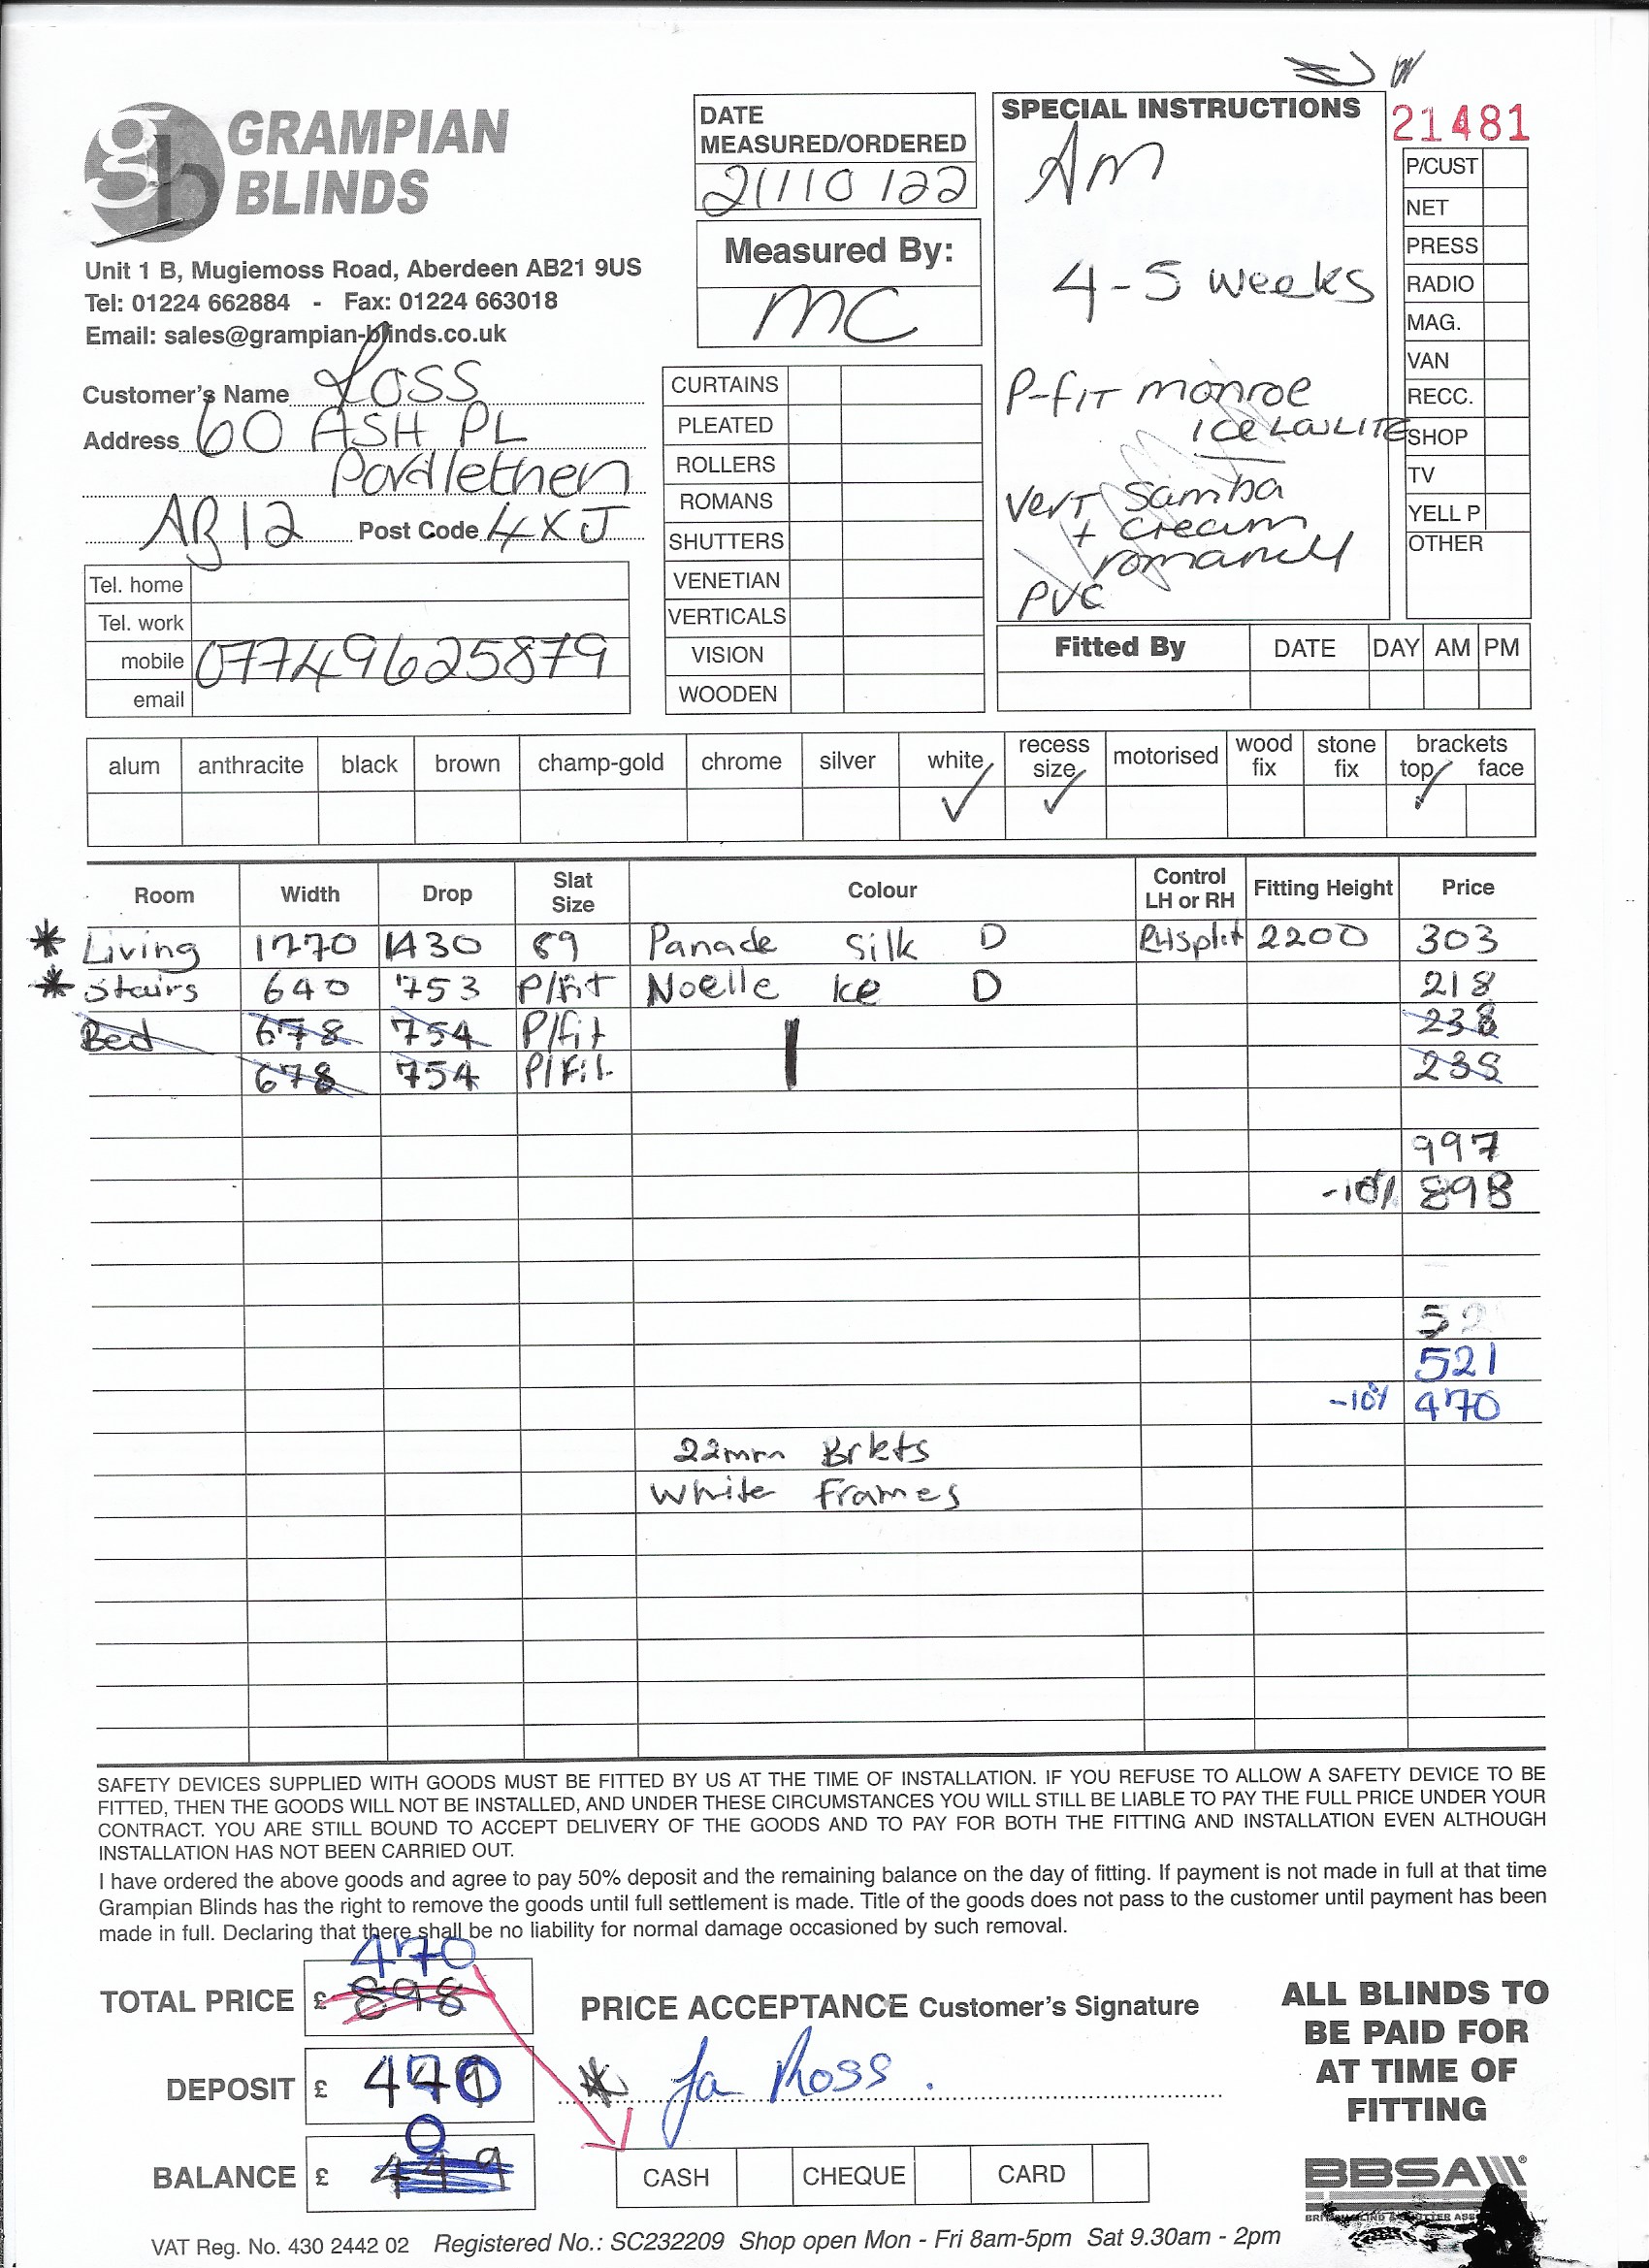 GRAMPIAN
BLINDS
Unit 1 B, Mugiemoss Road, Aberdeen AB21 9US
Tel: 01224 662884 - Fax: 01224 663018
Email: sales@grampian-blinds.co.uk
Customer's Name Ross
Address 60 ASH PL
Portlethen
AB12 Post Code 4XJ
Tel. home
Tel. work
mobile 07749625879
email
DATE
MEASURED/ORDERED
21/10/22
Measured By:
MC
CURTAINS
PLEATED
ROLLERS
ROMANS
SHUTTERS
VENETIAN
VERTICALS
VISION
WOODEN
SPECIAL INSTRUCTIONS
Am
4-5 weeks
P-fit monroe
ice
Vert Samba
+ cream
PVC
21481
P/CUST
NET
PRESS
RADIO
MAG.
VAN
RECC.
SHOP
TV
YELL P
OTHER
Fitted By DATE DAY AM PM
alum anthracite black brown champ-gold chrome silver white recess size motorised wood fix stone fix brackets top face
✓ ✓ ✓
Room Width Drop Slat Size Colour Control LH or RH Fitting Height Price
* Living 1770 1430 89 Panade Silk D RHsplit 2200 303
* Stairs 640 753 P/fit Noelle Ice D 218
Bed 678 754 P/fit 238
678 754 P/Fit 238
997
-10% 898
52
521
-10% 470
22mm Brkts
White frames
SAFETY DEVICES SUPPLIED WITH GOODS MUST BE FITTED BY US AT THE TIME OF INSTALLATION. IF YOU REFUSE TO ALLOW A SAFETY DEVICE TO BE
FITTED, THEN THE GOODS WILL NOT BE INSTALLED, AND UNDER THESE CIRCUMSTANCES YOU WILL STILL BE LIABLE TO PAY THE FULL PRICE UNDER YOUR
CONTRACT. YOU ARE STILL BOUND TO ACCEPT DELIVERY OF THE GOODS AND TO PAY FOR BOTH THE FITTING AND INSTALLATION EVEN ALTHOUGH
INSTALLATION HAS NOT BEEN CARRIED OUT.
I have ordered the above goods and agree to pay 50% deposit and the remaining balance on the day of fitting. If payment is not made in full at that time
Grampian Blinds has the right to remove the goods until full settlement is made. Title of the goods does not pass to the customer until payment has been
made in full. Declaring that there shall be no liability for normal damage occasioned by such removal.
470
TOTAL PRICE £ 898
DEPOSIT £
0
BALANCE £ 449
PRICE ACCEPTANCE Customer's Signature
* Ross.
CASH CHEQUE CARD
ALL BLINDS TO
BE PAID FOR
AT TIME OF
FITTING
BBSA
VAT Reg. No. 430 2442 02 Registered No.: SC232209 Shop open Mon - Fri 8am-5pm Sat 9.30am - 2pm